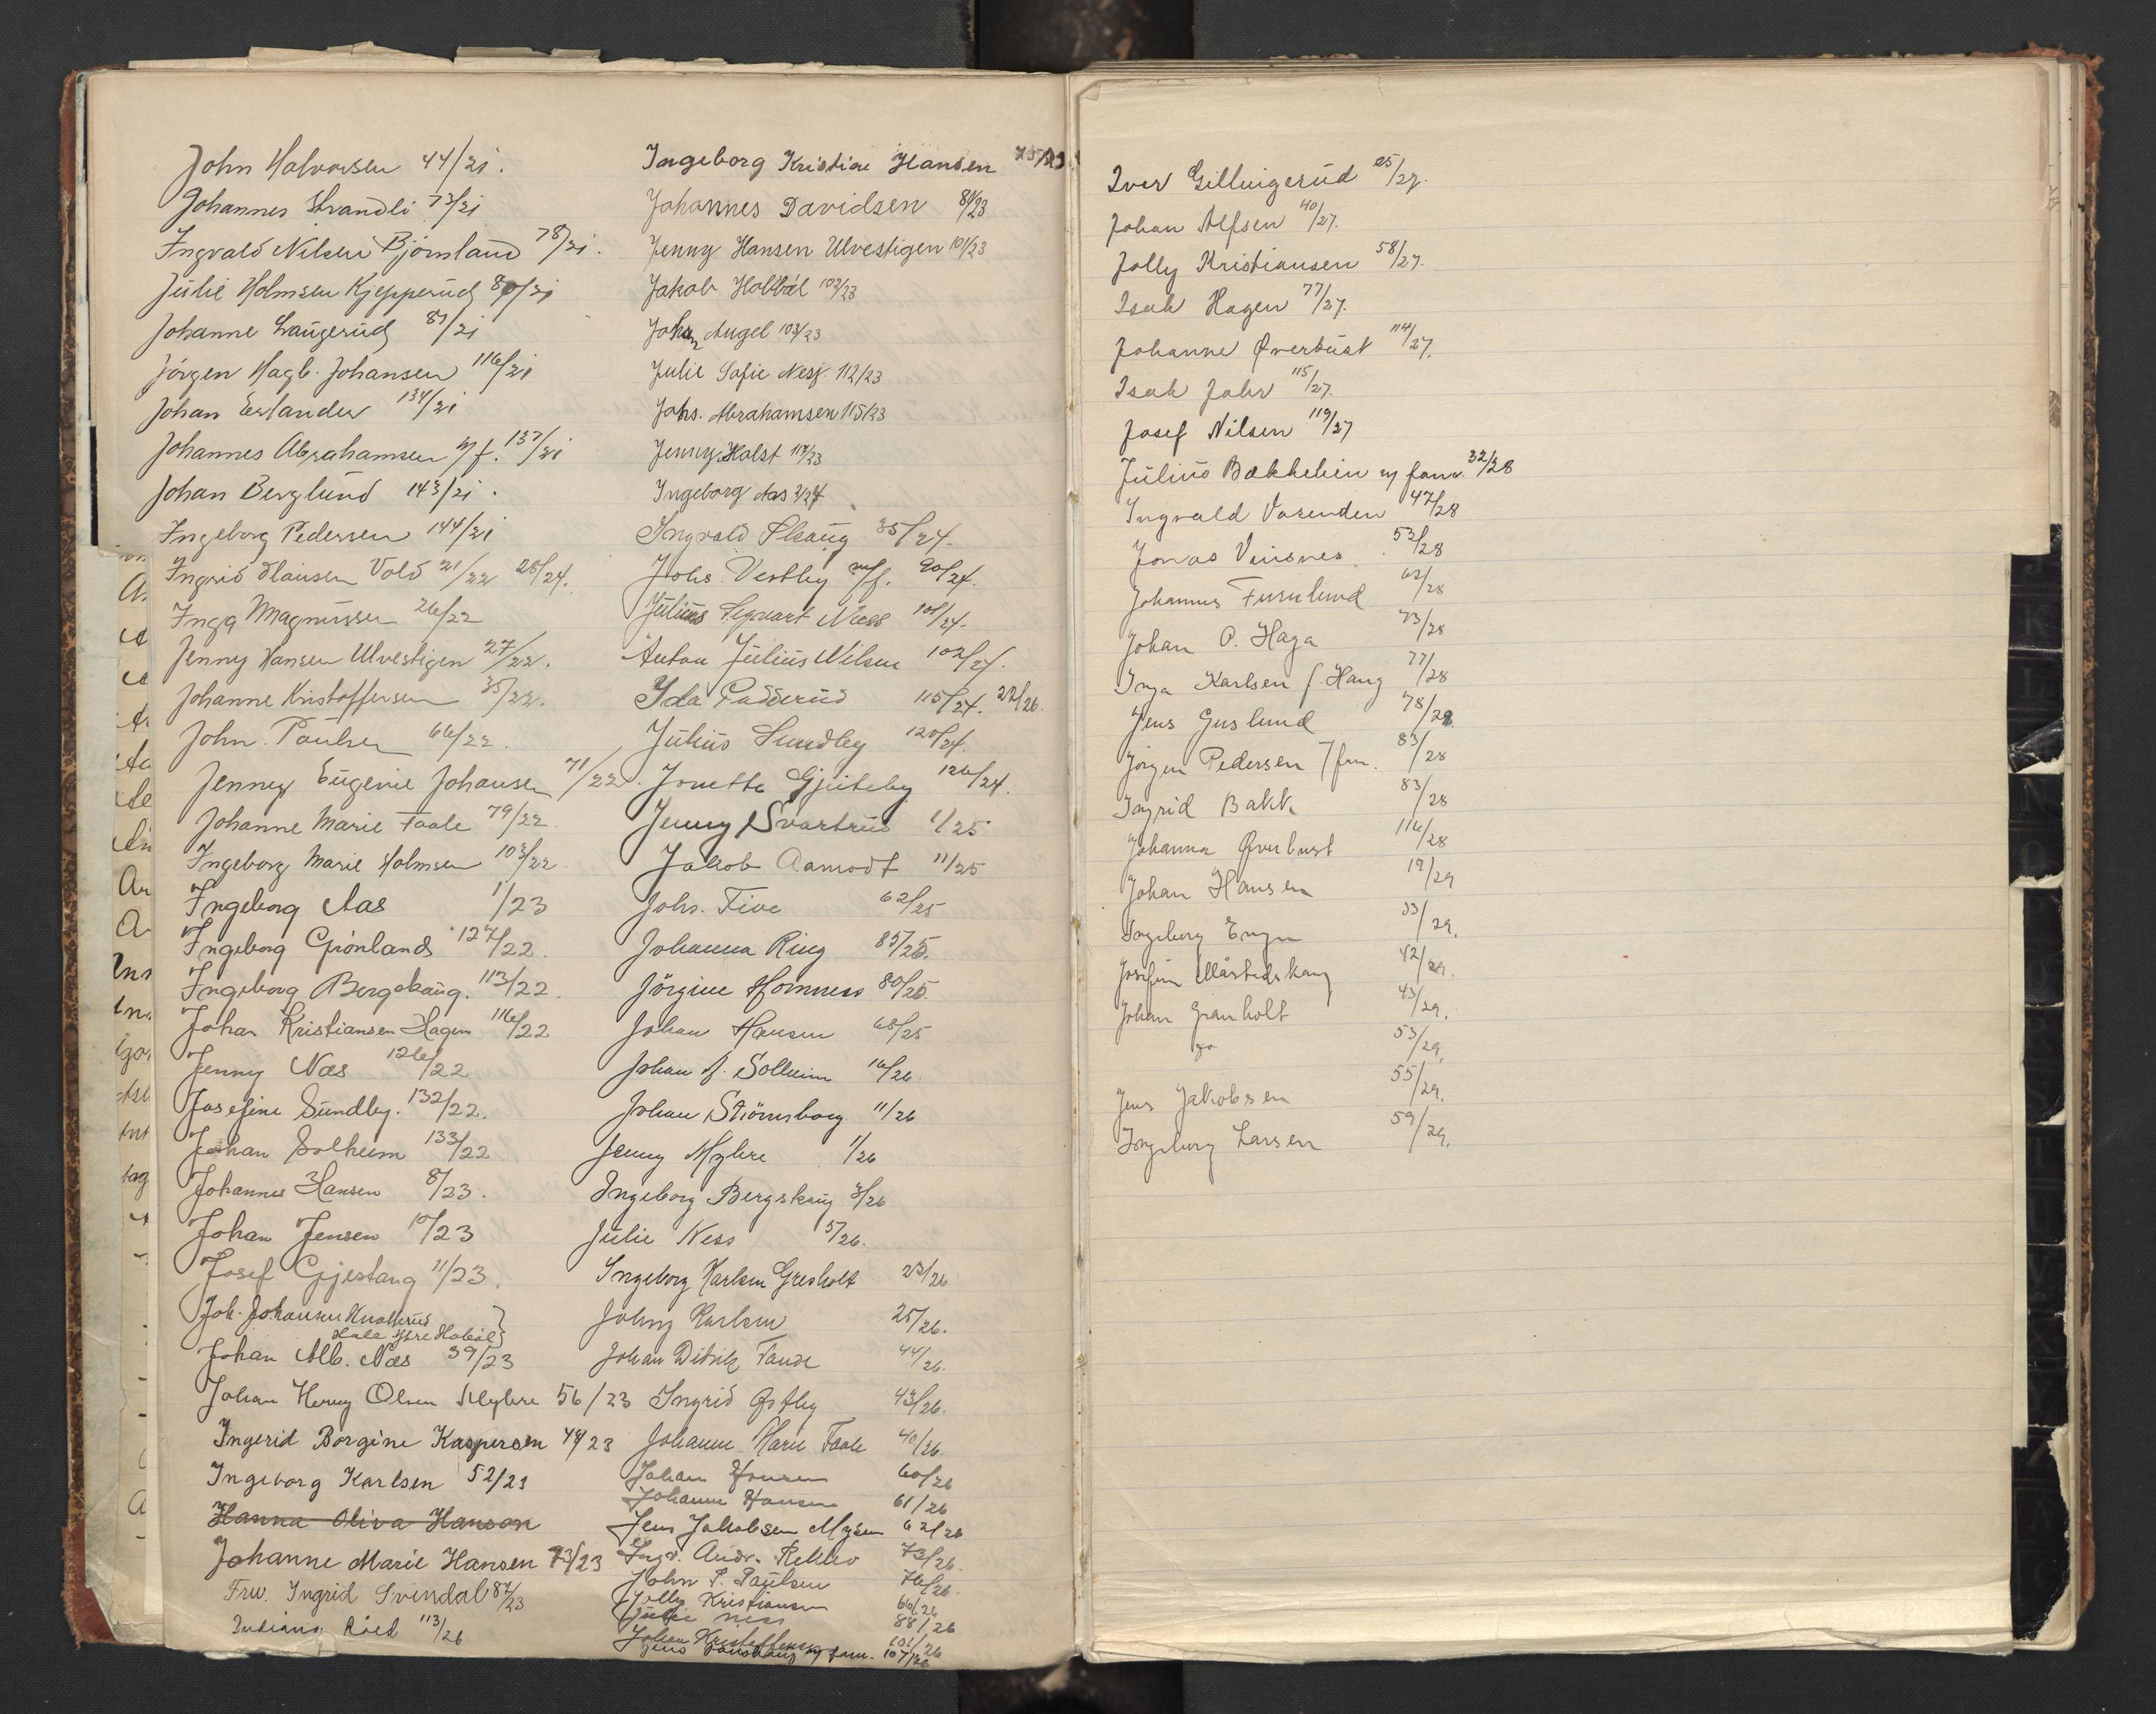 John Halvorsen 44/21.
Johannes Strandli 73/21
Ingvald Nilsen Bjørnland 78/21.
Julie Holmsen Kjepperud 80/21
Johanne Laugerud 89/21
Jørgen Hagb. Johansen 116/21
Johan Erlander 134/21
Johannes Abrahamsen m/f. 137/21
Johan Berglund 143/21.
Ingeborg Pedersen 144/21
Ingrid Hansen Vold 21/22 28/24.
Inga Magnussen 26/22
Jenny Hansen Ulvestigen 27/22.
Johanne Kristoffersen 35/22.
John. Paulsen 66/22.
Jenny Eugenie Johansen 71/22.
Johanne Marie Faale 79/22
Ingeborg Marie Holmsen 103/22
Ingeborg Aas 1/23
Ingeborg Grønland 127/22.
Ingeborg Bergskaug. 113/22.
Johan Kristiansen Hagen 116/22
Jenny Næs 126/22
Josefine Sundby. 132/22.
Johan Solheim 133/22
Johannes Hansen 8/23.
Johan Jensen 10/23
Josef Gjestang 11/23.
Joh. Johansen
Johan Alb. Næs 39/23
Johan Henry Olsen Myhre 56/23
Ingerid Borgine Kaspersen 44/23
Ingeborg Karlsen 52/23
Hanna Oliva Hanson
Johanne Marie Hansen 73/23
Frw. Ingrid Svindal 87/23
Indiana Röed 113/26
Ingeborg Kristine Hansen
Johannes Davidsen 80/23
Jenny Hansen Ulvestigen 101/23
Jakob Hobbøl 102/23
Johan Angel 103/23
Julie Sofie Nesj 112/23
Johs. Abrahamsen 115/23
Jenny Holst 117/23
Ingeborg Aas 2/24
Ingvald Skaug 35/24.
Johs. Vestby m/f. 90/24.
Julius Næss 101/24.
Anton Julius Nilsen 102/24.
Ida Padderud 115/24. 22/26.
Julius Sundby 120/24.
Jonette Gjuteby 126/24.
Jenny Svartrud 1/25
Jakob Aamodt 11/25
Johs. Five 62/25
Johanna Ring 85/25.
Jörgine Homness 80/25.
Johan Hansen 68/25
Johan A. Solheim 16/26.
Johan Strömsborg 11/26
Jenny Myhre 1/26
Ingeborg Bergskaug 3/26
Julie Ness 5/26.
Ingeborg Karlsen Gresholt 23/26
Johny Karlsen 25/26.
Johan Didrik Fande 44/26.
Ingrid Østby 43/26.
Johanne Marie Faale 40/26
Johan Hansen 60/26
Johanne Hansen 61/26
Jens Jakobsen Mysen 62/26
Ingv. Andr. 73/26.
John P. Paulsen 76/26.
Jolly Kristiansen 66/26
Julie Ness 88/26
Johan Kristoffersen 101/26
Jens m fam. 107/26
Iver Gillingerud 25/27.
Johan Alfsen 40/27.
Jolly Kristiansen 58/27.
Isak Hagen 77/27.
Johanne Øverbust 114/27.
Isak Jahr 115/27.
Josef Nilsen 119/27
Julius Bækkelien m fam. 32/28
Ingvald Vasenden 47/28
Jonas Vinsnes 52/28
Johannes Furulund 62/28
Johan O. Haga 73/28
Inga Karlsen f. Haug 77/28
Jens Guslund 78/28
Jörgen Pedersen 7 fm. 83/28
Ingrid Bakke 83/28
Johanna Øverbust 116/28
Johan Hansen 19/29
Ingeborg Engen 33/29.
Josefine 42/29.
Johan Granholt 43/29.
do 53/29.
Jens Jakobsen 55/29.
Ingeborg Larsen 59/29.